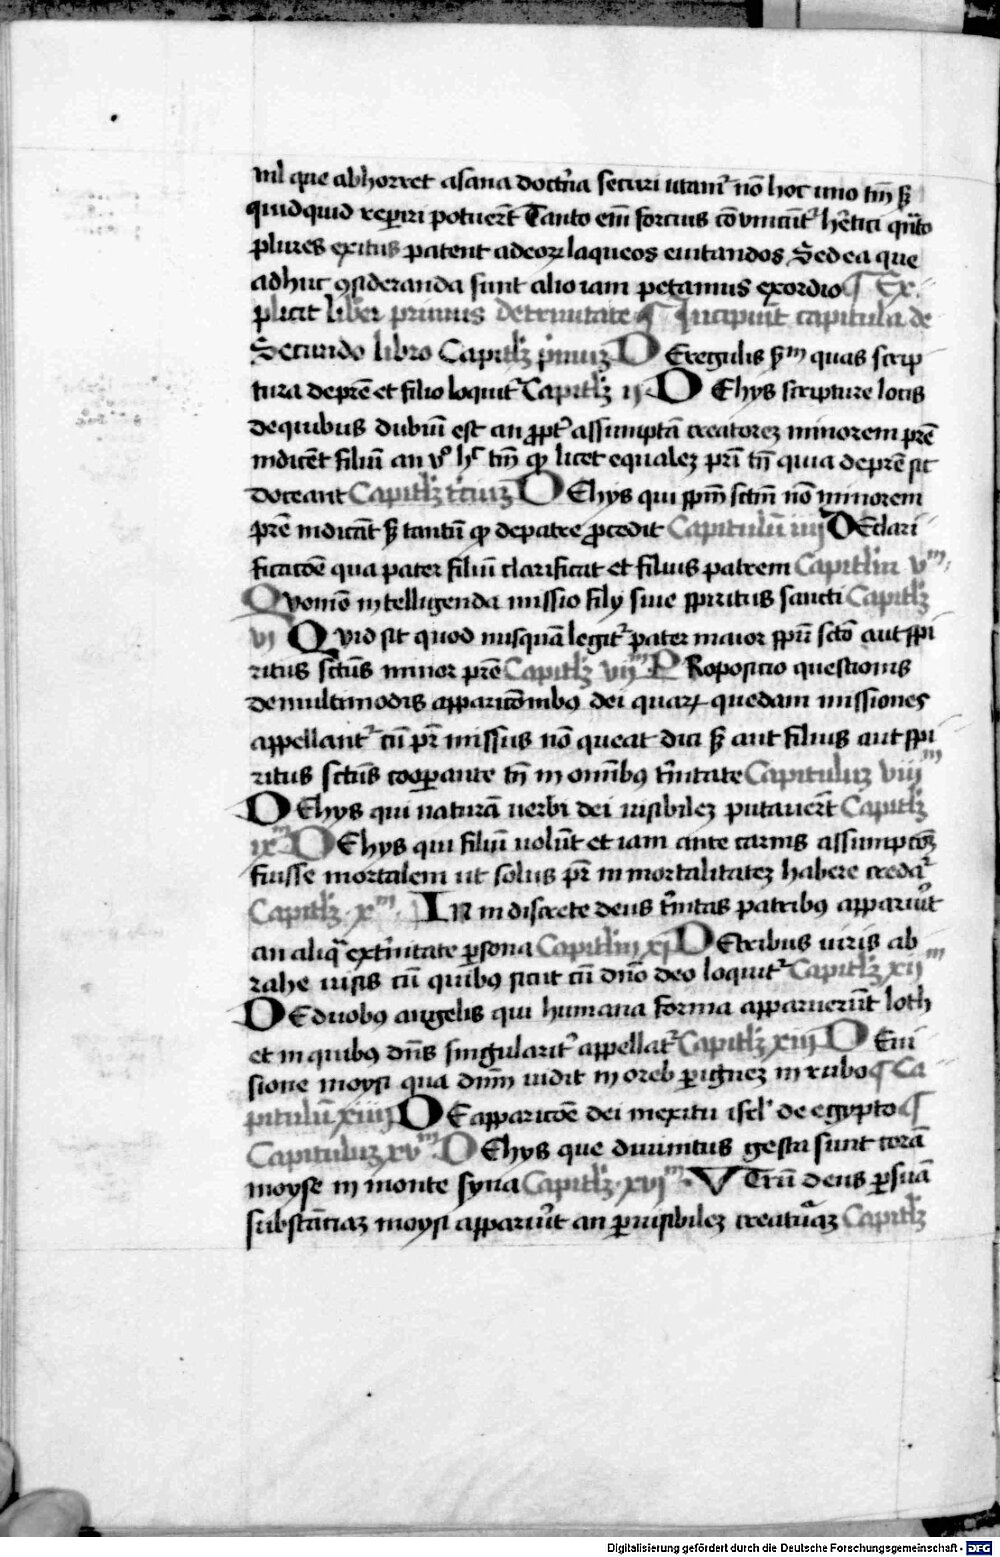 nil que abhorret a sana doctrīa securi utamᷣ nō hoc uno tm̄ ꝫ
quidquid reꝑiri potuerīt Tanto em̄ forcius cōvincūtᷣ hēr̄tici qn̄to
plures exitus patent ad eoꝝ laqueos euitandos Sed ea que
adhuc ꝯsideranda sunt alio iam petamus exordio ¶ Ex
plicit liber primus de trinitate ¶ Incipiūt capitula de
Secundo libro Capitl̄ꝫ p̄muꝫ DE regulis ẜm quas scrip
tura de prē et filio loquitᷣ Capitl̄ꝫ ij DE hys scripture locis
de quibus dubiū est an ꝓptᷣ assumptā creatoreꝫ minorem prē
indicēt filiū an vͦ hͨ tm̄ ꝙ licet equaleꝫ prī tn̄ quia de prē sit
doceant Capitl̄ꝫ tciuꝫ DE hys qui spm̄ sctm̄ nō minorem
prē indicāt ꝫ tantū ꝙ de patre ꝓcedit Capitulū iiij DE clari
ficacōe qua pater filiū clarificat et filius patrem Capitl̄m vᵐ
Quomō intelligenda missio fily siue spiritus sancti Capitl̄ꝫ
vj Quid sit quod nusquā legitᷣ pater maior spū sctō aut spi
ritus sctūs minor prē Capitl̄ꝫ vijᵐ PRopositio questionis
de multimodis apparicōnibꝰ dei quaꝝ quedam missiones
appellantᷣ cū pr̄ missus nō queat dici ꝫ aut filius aut spi
ritus sctūs cooꝑante tn̄ in omībꝰ trīnitate Capituluꝫ viijᵐ
DE hys qui naturā uerbi dei uisibileꝫ putauerīt Capitl̄ꝫ
ixᵐ DE hys qui filiū uolūt et iam ante carnis assumptōeꝫ
fuisse mortalem ut solus pr̄ inmortalitateꝫ habere credaᷣ
Capitl̄ꝫ xᵐ IN indiscrete deus trīnitas patribꝰ apparuīt
an aliqͣ ex trīnitate ꝑsona Capitl̄m xj DE tribus uiris ab
rahe uisis cū quibꝰ sicut cū dnō deo loquitᷣ Capitl̄ꝫ xijᵐ
DE duobꝰ angelis qui humana forma apparuerūt loth
et in quibꝰ dn̄s singularitᷣ appellatᷣ Capitl̄ꝫ xiij DE ui
sione moysi qua dnm̄ uidit in oreb ꝑ igneꝫ in rubo ¶ Ca
pitulū xiiij DE apparicōe dei in exitu isrl̄ de egypto ¶
Capituluꝫ xvᵐ DE hys que diuinitus gesta sunt corā
moyse in monte syna Capitl̄ꝫ xvjᵐ VTrū deus ꝑ suā
substāciaꝫ moysi apparuīt an ꝑ uisibileꝫ creatuᷓaꝫ Capitl̄ꝫ
Digitalisierung gefördert durch die Deutsche Forschungsgemeinschaft - DFG